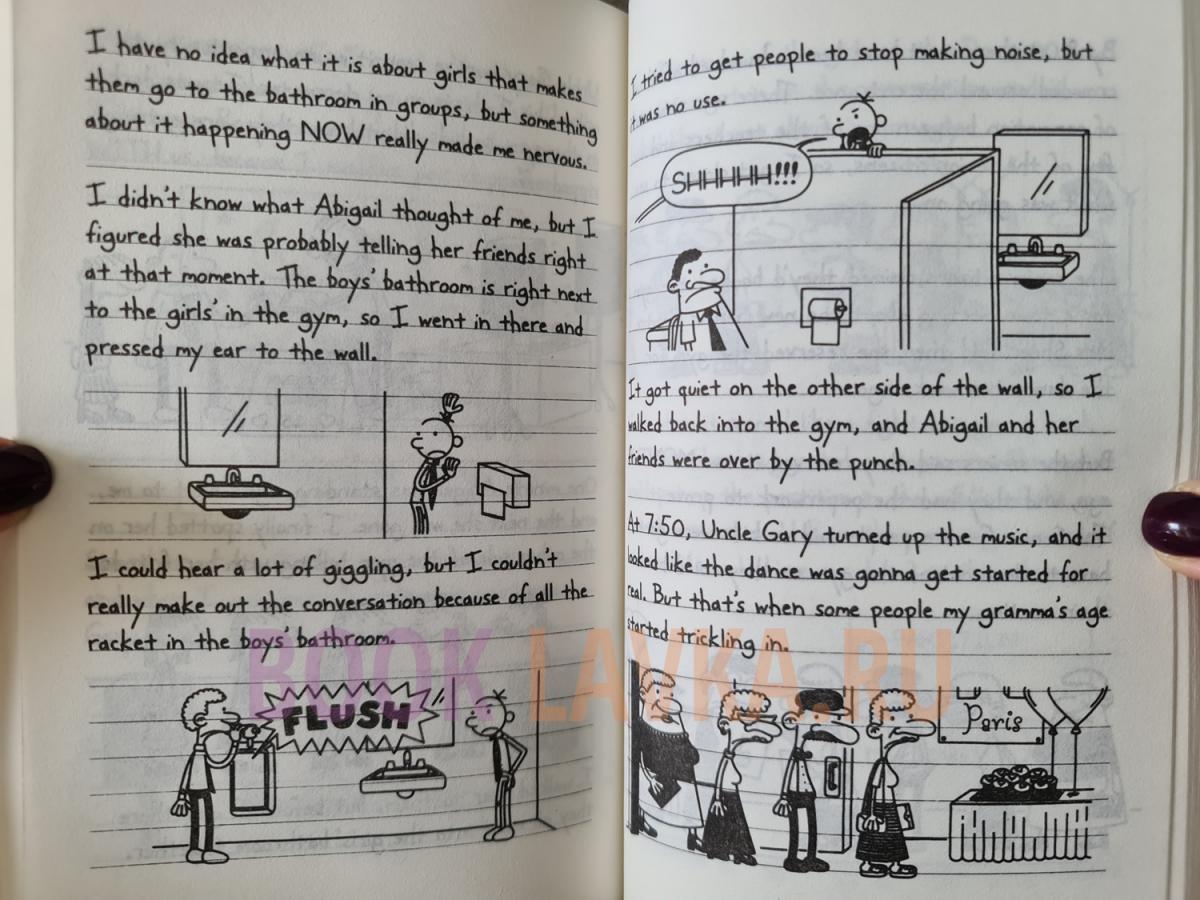 I have no idea what it is about girls that makes
them go to the bathroom in groups, but something
about it happening NOW really made me nervous.
I didn't know what Abigail thought of me, but I
figured she was probably telling her friends right
at that moment. The boys' bathroom is right next
to the girls' in the gym, so I went in there and
pressed my ear to the wall.
I could hear a lot of giggling, but I couldn't
really make out the conversation because of all the
racket in the boys' bathroom.
FLUSH
I tried to get people to stop making noise, but
it was no use.
SHHHHH!!!
It got quiet on the other side of the wall, so I
walked back into the gym, and Abigail and her
friends were over by the punch.
At 7:50, Uncle Gary turned up the music, and it
looked like the dance was gonna get started for
real. But that's when some people my gramma's age
started trickling in.
Paris
BOOK LAVKA.RU